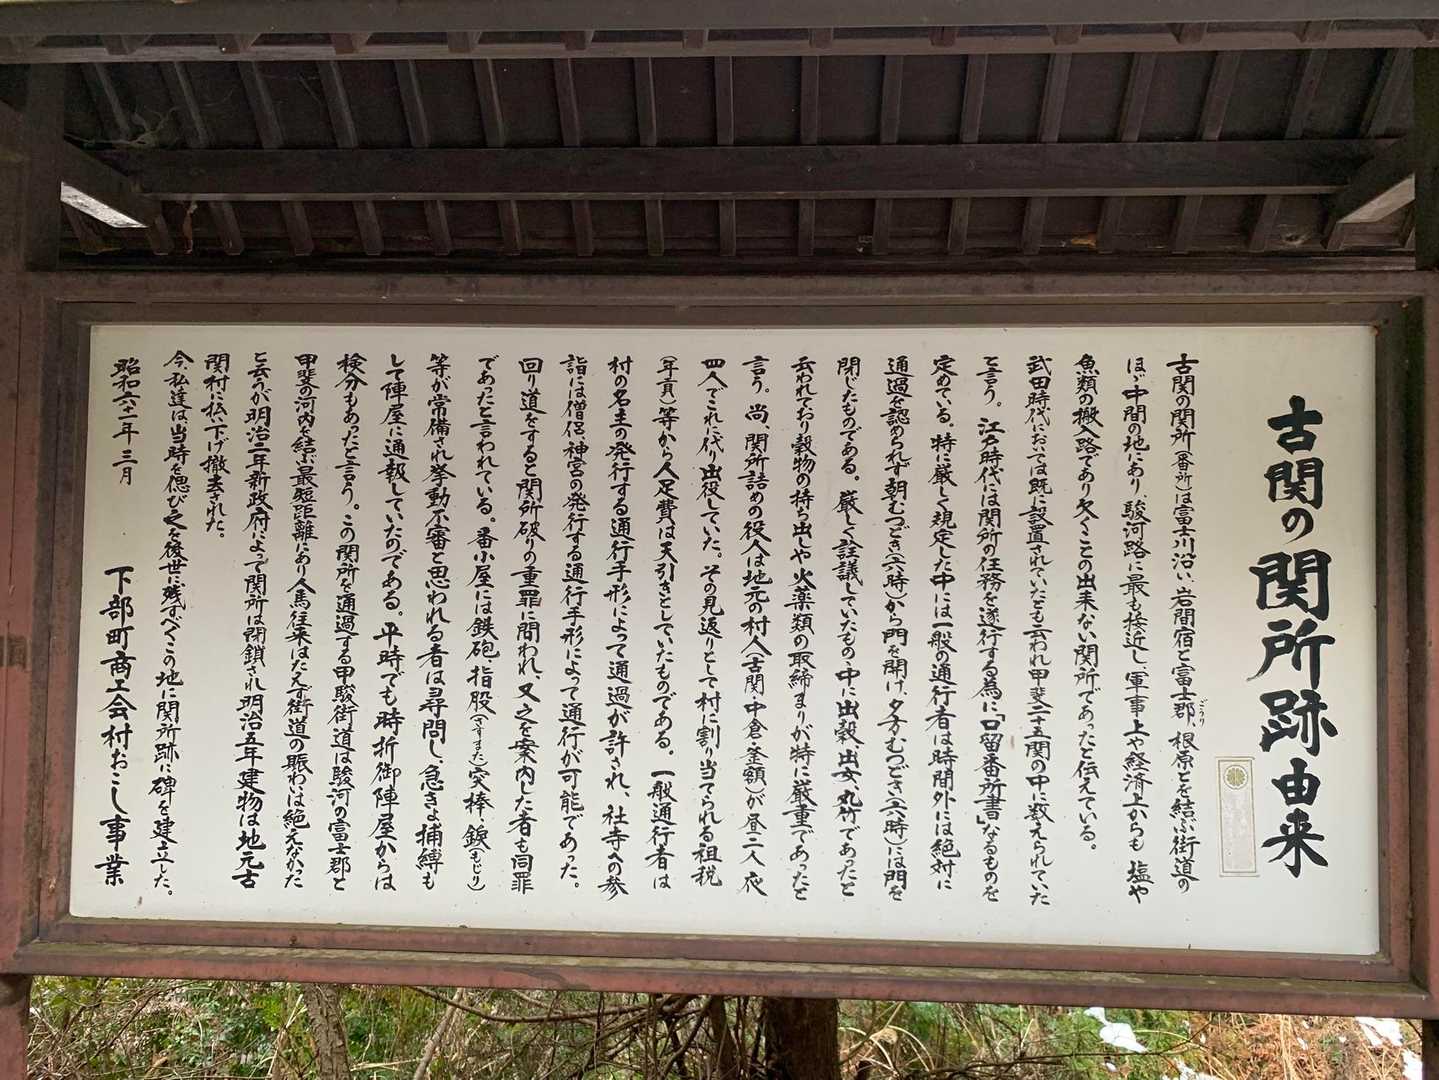 古関の関所跡由来
古関の関所(番所)は富士川沿い、岩間宿と富士郡、根原とを結ぶ街道の
ごうり
ほゞ中間の地にあり、駿河路に最も接近し、軍事上や経済上からも塩や
魚類の搬入路であり欠くことの出来ない関所であったと伝えている。
武田時代においては既に設置されていたとも云われ甲斐二十五関の中に数えられていた
と言う。江戸時代には関所の任務を遂行する為に「口留番所書」なるものを
定めている。特に厳しく規定した中には一般の通行者は時間外には絶対に
通過を認められず朝むつどき(六時)から門を開け、夕方むつどき(六時)には門を
閉じたものである。厳しく詮議していたもの中に出穀、出女、丸竹であったと
云われており穀物の持ち出しや火薬類の取締まりが特に厳重であったと
言う。尚、関所詰めの役人は地元の村人(古関・中倉・釜額)が昼二人夜
四人でこれに代り出役していた。その見返りとして村に割り当てられる租税
(年貢)等から人足費は天引きとしていたものである。一般通行者は
村の名主の発行する通行手形によって通過が許され、社寺への参
詣には僧侶、神宮の発行する通行手形によって通行が可能であった。
回り道をすると関所破りの重罪に問われ、又之を案内した者も同罪
であったと言われている。番小屋には鉄砲、指股(さすまた)突棒、錑(もじり)
等が常備され挙動不審と思われる者は尋問し、急きょ捕縛も
して陣屋に通報していたのである。平時でも時折御陣屋からは
検分もあったと言う。この関所を通過する甲駿街道は駿河の富士郡と
甲斐の河内を結ぶ最短距離にあり人馬往来はたえず街道の賑わいは絶えなかった
と云うが明治二年新政府によって関所は閉鎖され明治五年建物は地元古
関村に払い下げ撤去された。
今、私達は、当時を偲び之を後世に残すべくこの地に関所跡に碑を建立した。
昭和六十一年三月
下部町商工会村おこし事業